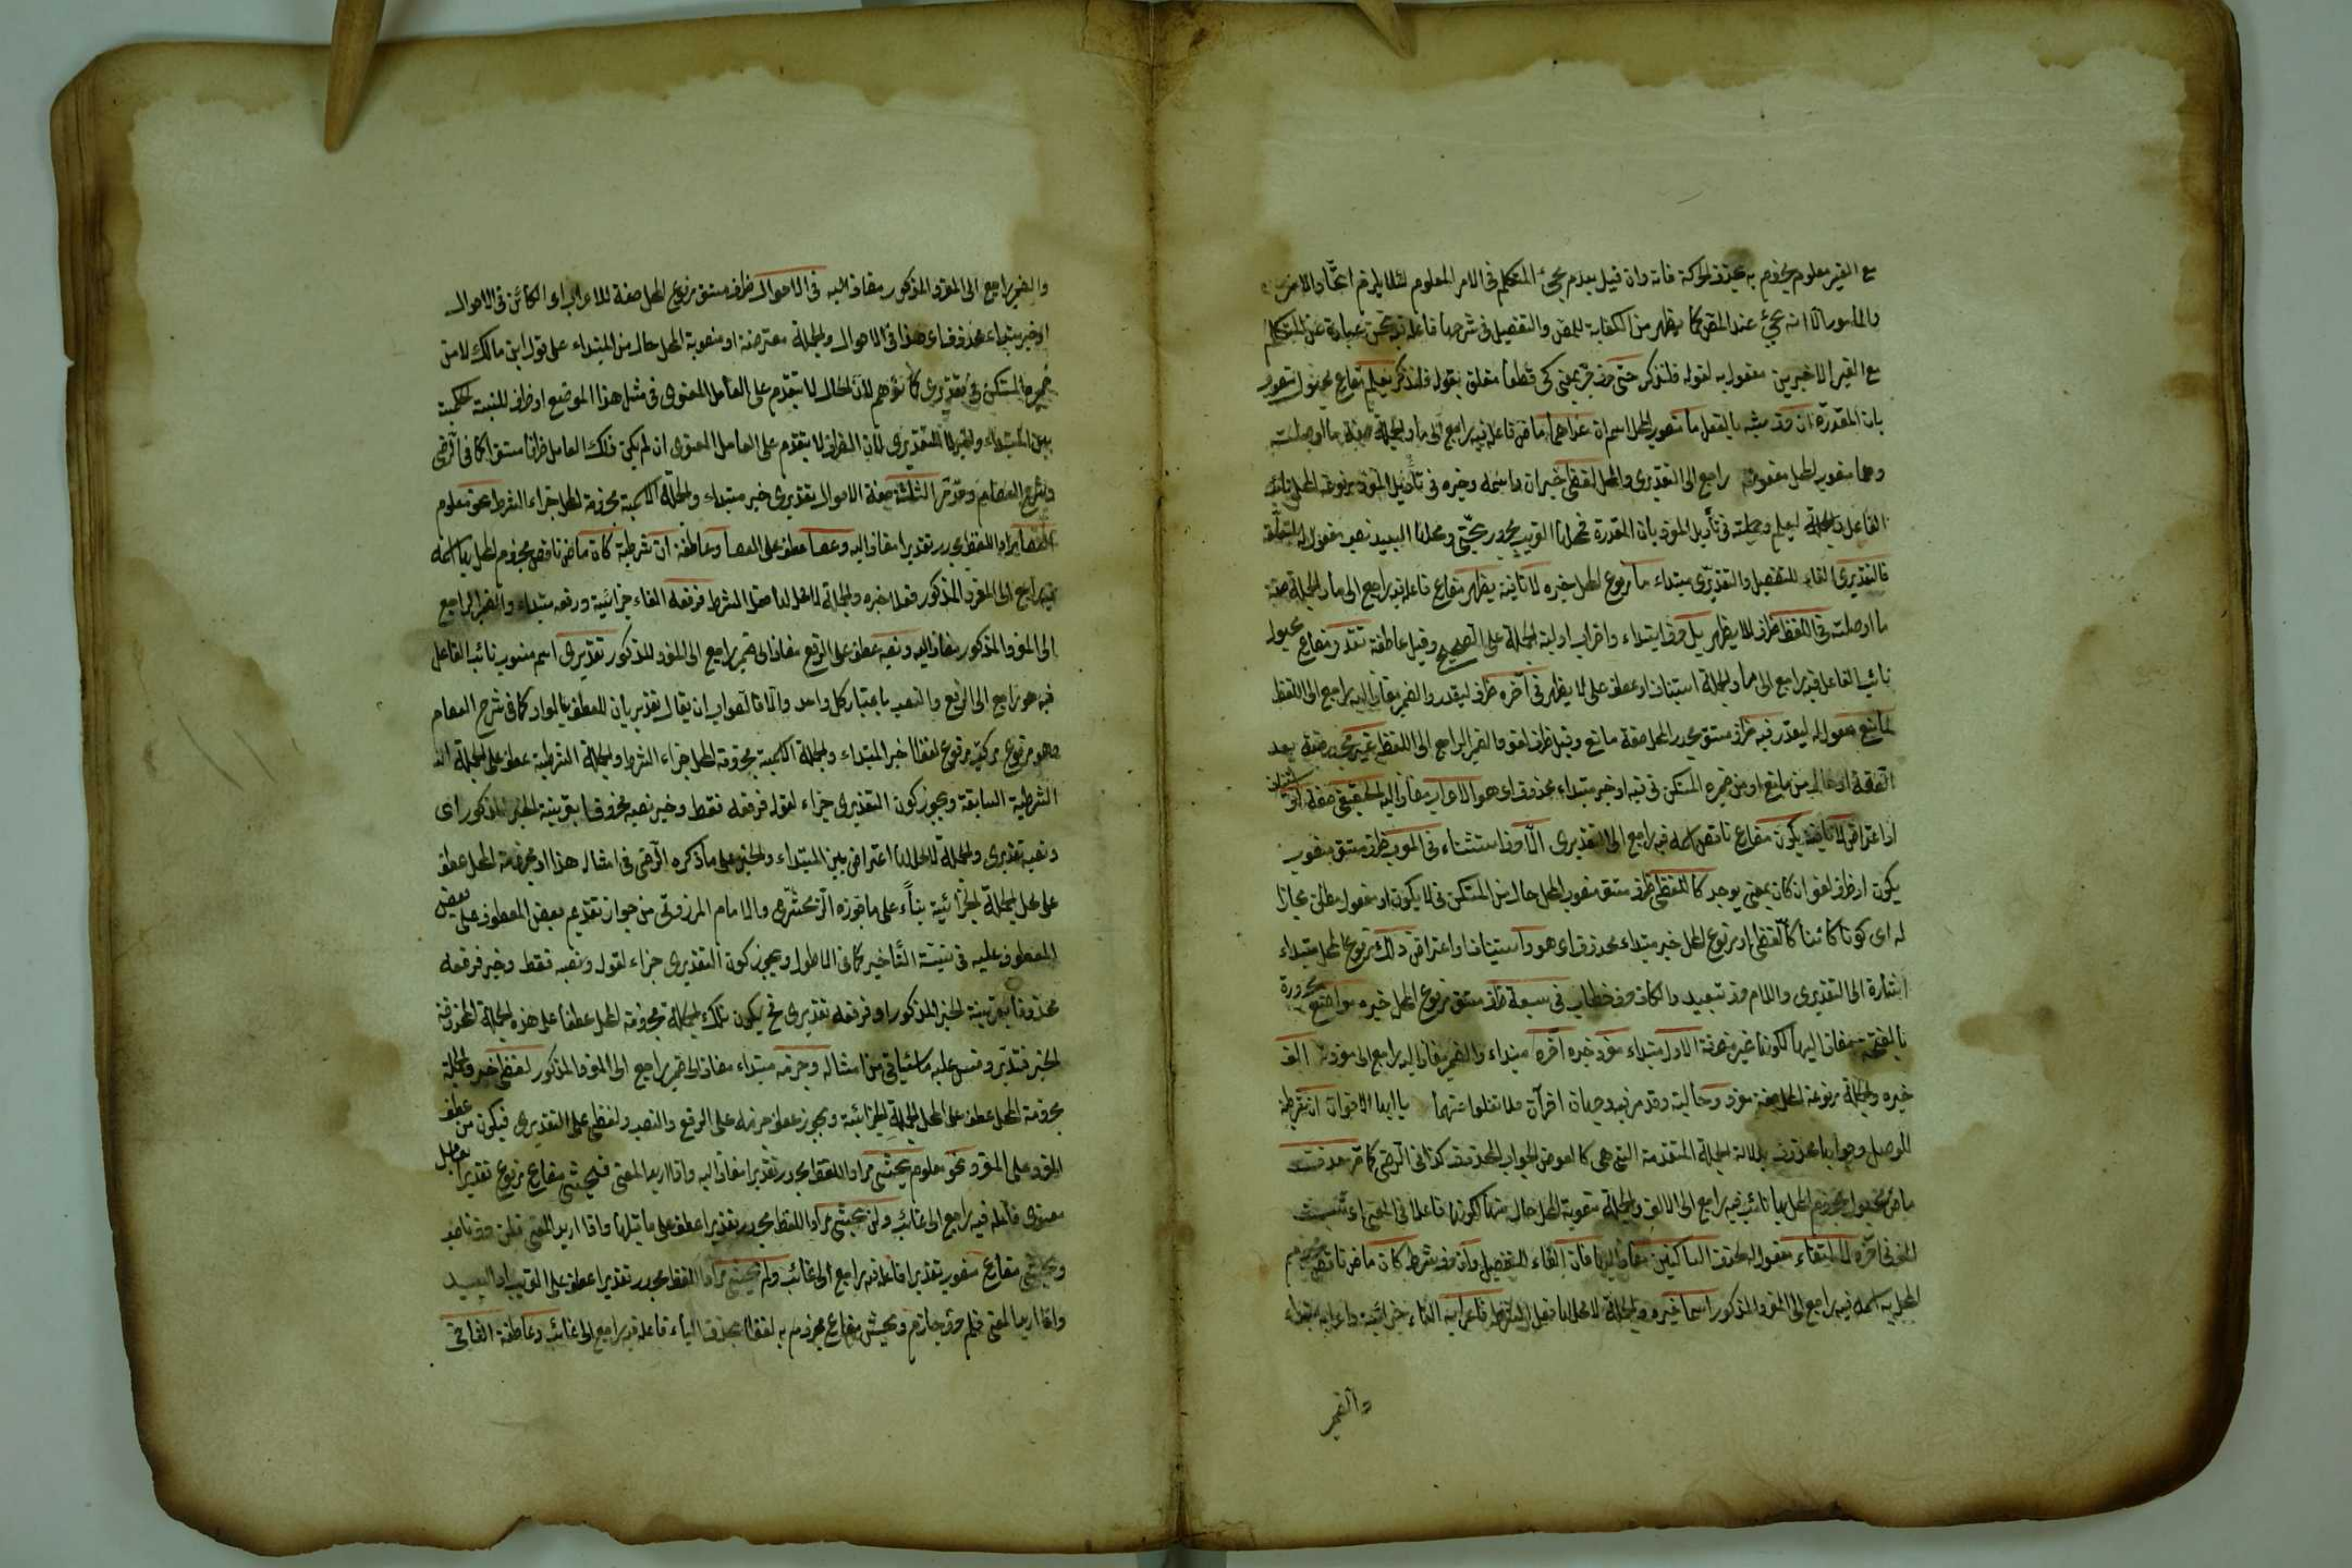 مع الغير معلوم مجزوم به بحذف الحركة فانه وان قيل بعدم مجئ المتكلم فى الامر المعلوم لئلا يلزم اتحاد الامر
والمأمور الا انه مجئ عند المص كما يظهر من الكفاية للمص والتفصيل فى شرحها فاعله فيه نحن عبارة عن المتكلم
مع الغير الاخيرين مفعول به لقوله فلنذكر حتى حرف جر بمعنى كى قطعا متعلق بقوله فلنذكر يعلم مضارع مجهول منصوب
بان المقدرة ان حرف مشبه بالفعل ما منصوب المحل اسم ان عداهما ماض فاعله فيه راجع الى ما والجملة صفة ما او صلته
وهما منصوب المحل مفعوله راجع الى التقديرى والمحلى لفظى خبر ان واسمه وخبره فى تأويل المفرد مرفوعة المحل نائب
الفاعل والجملة ليعلم وجملته فى تأويل المفرد بان المقدرة فمحلها القريب مجرور بحتى ومحلها البعيد نصب مفعول له لمتعلقه
فالتقديرى الفاء للتفصيل والتقديرى مبتداء ما مرفوع المحل خبره لا نافية يظهر مضارع فاعله فيه راجع الى ما والجملة صفة
ما او صلته فى اللفظ ظرف للا يظهر بل حرف ابتداء واضراب اولية الجملة على الصحيح وقيل عاطفة تقدر مضارع مجهول
نائب الفاعل فيه راجع الى ما والجملة استيناف او عطف على لا يظهر فى آخره ظرف ليقدر والضمير مضاف اليه راجع الى اللفظ
لمانع مفعول له ليقدر فيه ظرف مستقر مجرور المحل صفة مانع وقيل ظرف لغو والضمير الراجع الى اللفظ غير مجرور صفة بعد
الصفة او حال من مانع او من ضميره المستكن فى فيه او خبر مبتداء محذوف اى هو الاعراب مضاف اليه الحقيقى صفة او استيناف
او اعتراض لا نافية يكون مضارع ناقص اسمه فيه راجع الى التقديرى الا حرف استثناء فى المعرب ظرف مستقر منصوب
يكون او ظرف لغو ان كان بمعنى يوجد كاللفظى ظرف مستقر منصوب المحل حال من المستكن فى لا يكون او مفعول مطلق مجازا
له اى كونا كائنا كاللفظى او مرفوع المحل خبر مبتداء محذوف اى هو واستيناف او اعتراض ذلك مرفوع المحل مبتداء
اشارة الى التقديرى واللام حرف تبعيد والكاف حرف خطاب فى سبعة ظرف مستقر مرفوع المحل خبره مواضع مجرورة
بالفتحة مضاف اليها لكونها غير منصرفة الاول مبتداء مفرد خبره آخره مبتداء والضمير مضاف اليه راجع الى مفرد الف
خبره والجملة مرفوعة المحل صفة مفرد
للوصل وجوابها محذوف بدلالة الجملة المتقدمة التى هى كالعوض الجواب المحذوف كذا فى الرضى كما مر حذفت
ماض مجهول مجزوم المحل بها نائب فيه راجع الى الالف والجملة منصوبة المحل حال منها لكونها فاعلا فى المعنى
لالتقاء مفعول له لحذفت الساكنين مضاف اليه فان الفاء للتفصيل وان حرف شرط كان ماض ناقص مجزوم
المحل به اسمه فيه راجع الى المفرد المذكور اسما خبره والجملة لا محل لها فعل الشرط فاعرابه الفاء جزائية واعرابه مبتداء
والضمير
والضمير راجع الى المفرد المذكور مضاف اليه فى الاحوال ظرف مستقر مرفوع المحل صفة للاعراب اى الكائن فى الاحوال
او خبر مبتداء محذوف اى هذا فى الاحوال والجملة معترضة او منصوبة المحل حال من المبتداء على قول ابن مالك لا من
ضميرها المستكن فى تقديرى كما توهم لان الحال لا يتقدم على العامل المعنوى فى مثل هذا الموضع او ظرف للنسبة الحكمية
بين المبتداء والخبر لا للتقديرى لان الظرف لا يتقدم على العامل المعنوى ان لم يكن ذلك العامل ظرفا مستقرا كما فى الرضى
وشرح العصام وقد مر الثلثة صفة الاحوال تقديرى خبر مبتداء والجملة الاسمية مجزومة المحل جزاء الشرط نحو معلوم
العصا مراد اللفظ مجرور تقديرا مضاف اليه وعصا عطف على العصا وعاطفة ان شرطية كان ماض ناقص مجزوم المحل بها اسمه
فيه راجع الى المفرد المذكور فعلا خبره والجملة لا محل لها فعل الشرط فرفعه الفاء جزائية ورفعه مبتداء والضمير الراجع
الى المفرد المذكور مضاف اليه ونصبه عطف على الرفع مضاف الى ضمير راجع الى المفرد المذكور تقديرى اسم منسوب نائب الفاعل
فيه هو راجع الى الرفع والنصب باعتبار كل واحد والا فالصواب ان يقال تقديريان للعطف بالواو كما فى شرح العصام
وهو مرفوع لفظا خبر المبتداء والجملة الاسمية مجزومة المحل جزاء الشرط والجملة الشرطية عطف على الجملة
الشرطية السابقة ويجوز كون التقديرى جزاء لقوله فرفعه فقط وخبر نصبه محذوفا بقرينة الخبر المذكور اى
ونصبه تقديرى والجملة لا محل لها اعتراض بين المبتداء والخبر على ما ذكره الرضى فى امثال هذا او مجزومة المحل عطف
على محل الجملة الجزائية بناء على ما جوزه الزمخشرى والامام المرزوقى من جواز تقديم بعض المعطوف على بعض
المعطوف عليه فى نية التأخير كما فى الاطول ويجوز كون التقديرى جزاء لقوله ونصبه فقط وخبر فرفعه
محذوفا بقرينة الخبر المذكور اى فرفعه تقديرى فح يكون تلك الجملة مجزومة المحل عطفا على هذه الجملة المحذوفة
الخبر فتدبر وقس عليه ما سيأتى من امثاله وجزمه مبتداء مضاف الى ضمير راجع الى المفرد المذكور لفظى خبره والجملة
مجزومة المحل عطف على المحل الجملة الجزائية ويجوز عطف جزمه على الرفع والنصب ولفظى على التقديرى فيكون من عطف
المفرد على المفرد نحو معلوم يخشى مراد اللفظ مجرور تقديرا مضاف اليه واذا اريد المعنى فيخشى مضارع مرفوع تقديرا بعامل
معنوى فاعله فيه راجع الى غائب ولن يخشى مراد اللفظ مجرور تقديرا عطف على ما قبلها واذا اريد المعنى فلن حرف ناصب
ويخشى مضارع منصوب تقديرا فاعله فيه راجع الى غائب ولم يخش مراد اللفظ مجرور تقديرا عطف على القريب او البعيد
واذا اريد المعنى فلم حرف جازم ويخش مضارع مجزوم به لفظا بحذف الياء فاعله فيه راجع الى غائب وعاطفة